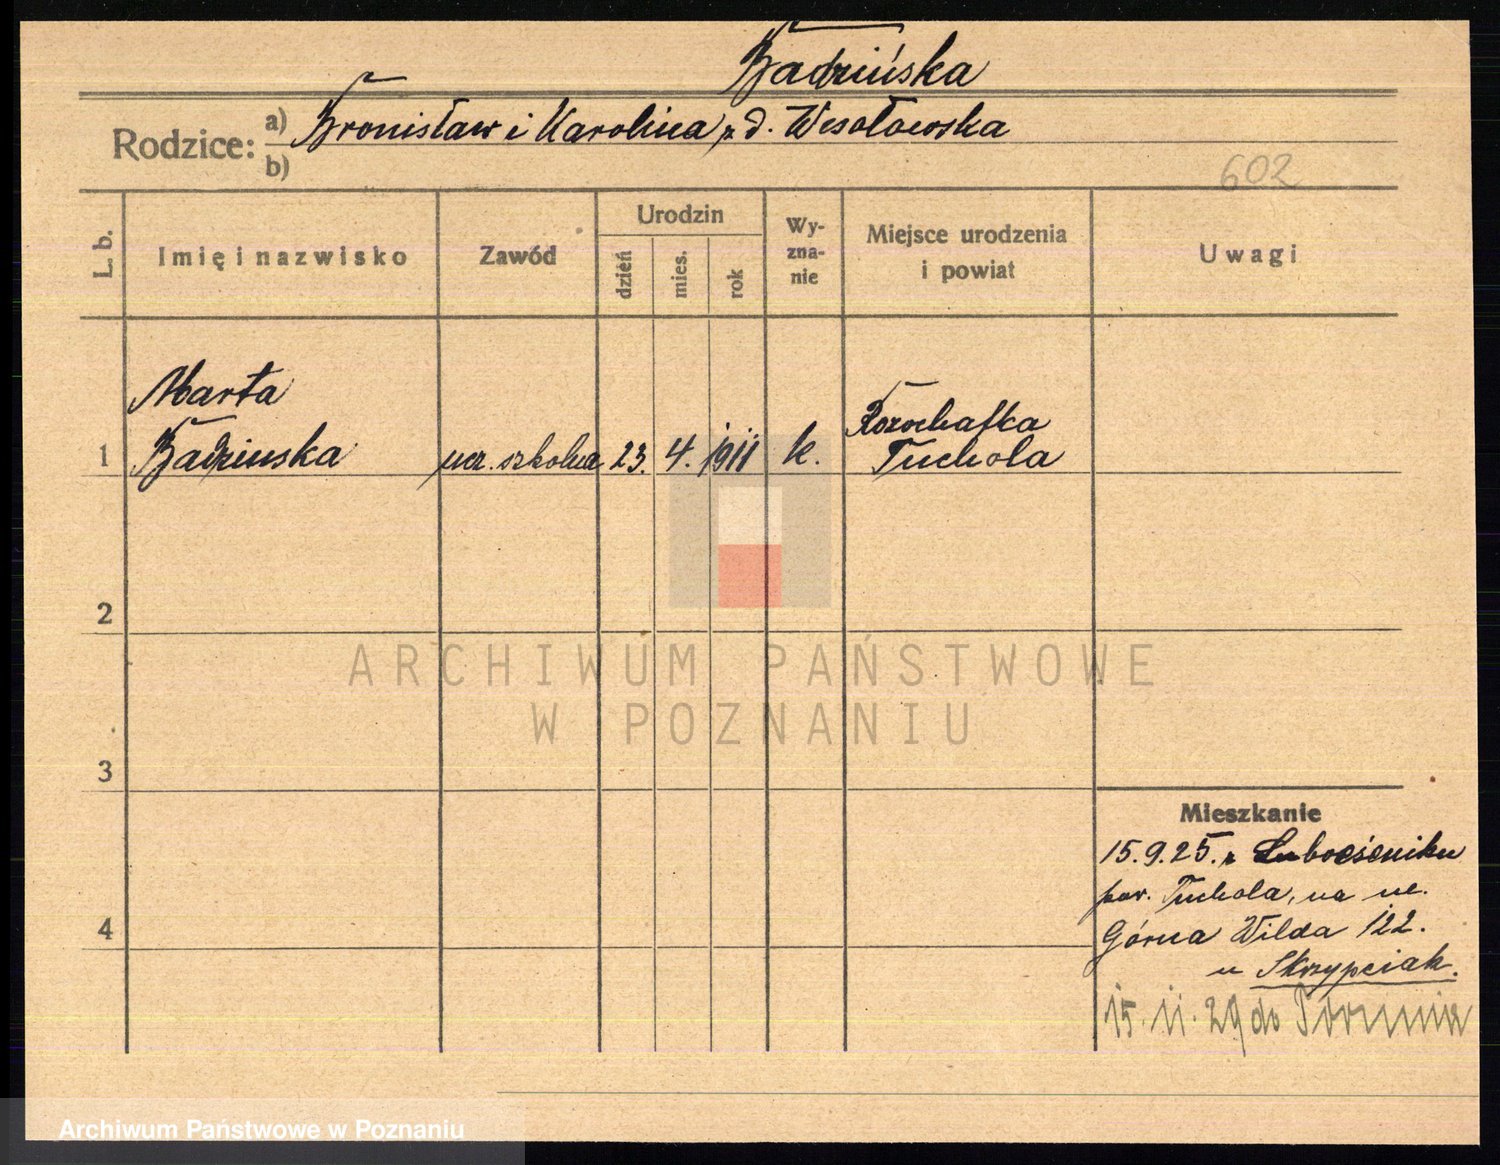 Badzińska
Rodzice: a) Bronisław i Karolina z d. Wesołowska
b)
602
L. b.
Imię i nazwisko
Zawód
Urodzin
dzień
mies.
rok
Wy-
zna-
nie
Miejsce urodzenia
i powiat
Uwagi
Marta
1 Badzinska ucz. szkolna 23. 4. 1911 k.
Tuchola
2
ARCHIWUM PAŃSTWOWE
W POZNANIU
3
4
Mieszkanie
15.9.25. z
pow. Tuchola, na ul.
Górna Wilda 122.
u Skrzypciak.
15.11.29 do Torunia
Archiwum Państwowe w Poznaniu